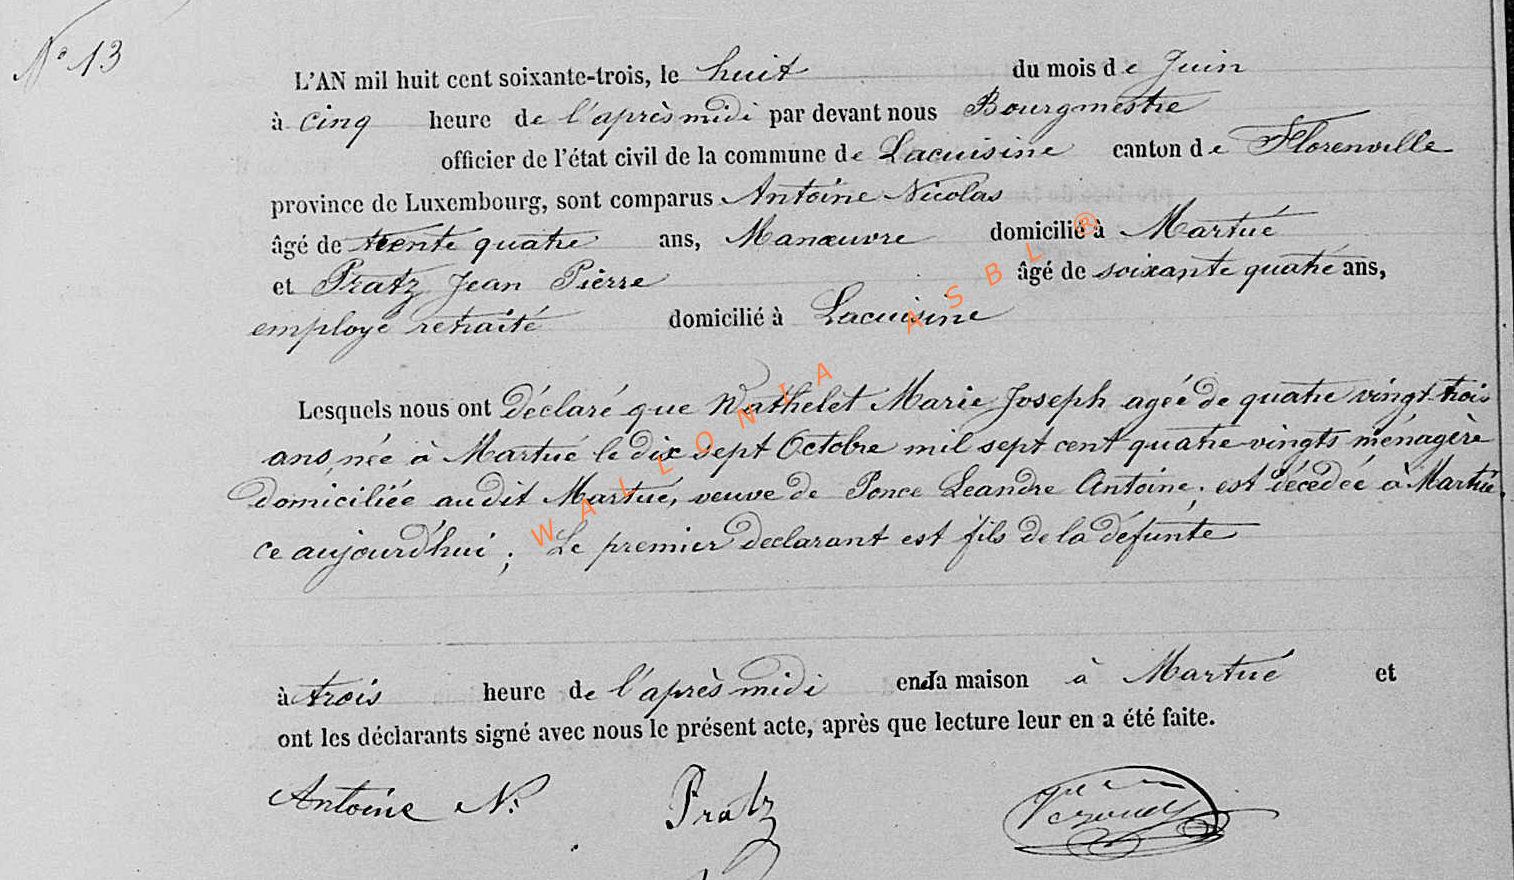 N° 13
L'AN mil huit cent soixante-trois, le huit du mois de Juin
à cinq heure de l'après midi par devant nous Bourgmestre
officier de l'état civil de la commune de Lacuisine canton de Florenville
province de Luxembourg, sont comparus Antoine Nicolas
âgé de trente quatre ans, Manœuvre domicilié à Martué
et Pratz Jean Pierre âgé de soixante quatre ans,
employé retraité domicilié à Lacuisine
Lesquels nous ont déclaré que Wathelet Marie Joseph agée de quatre vingt trois
ans, née à Martué le dix sept Octobre mil sept cent quatre vingts ménagère
domiciliée audit Martué, veuve de Ponce Leandre Antoine. est décédée à Martué.
ce aujourd'hui ; Le premier declarant est fils de la défunte
à trois heure de l'après midi en la maison à Martué et
ont les déclarants signé avec nous le présent acte, après que lecture leur en a été faite.
Antoine N. Pratz
WALLONIA ASBL ®